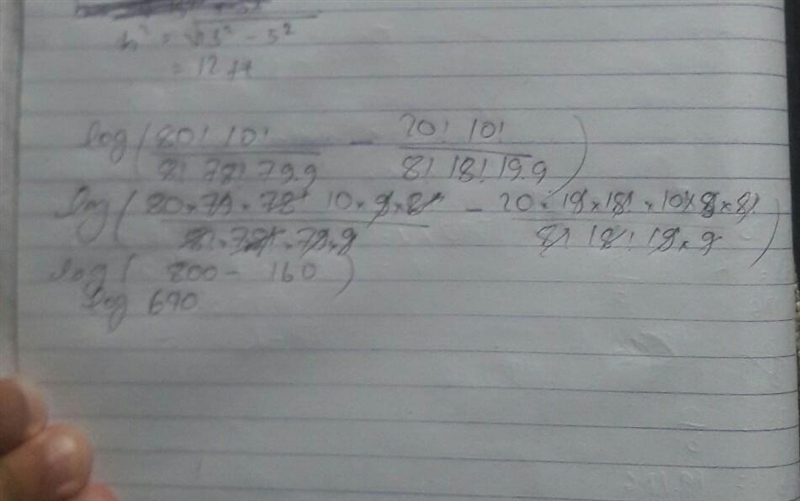 h² = √13² - 5²
= 12 ft
log ( 80! 10! / 8! 78! 79.9 - 20! 10! / 8! 18! 19.9 )
log ( 80 × 79 × 78! 10 × 9 × 8! / 8! × 78! × 79 × 9 - 20 × 19 × 18! × 10 × 9 × 8! / 8! 18! 19 × 9 )
log ( 800 - 160 )
log 640